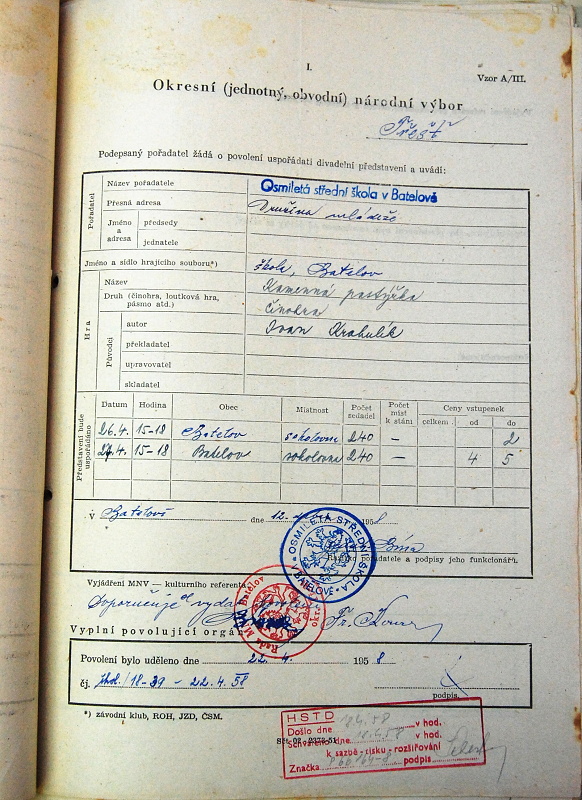 I.
Vzor A/III.
Okresní (jednotný, obvodní) národní výbor
Třešť
Podepsaný pořadatel žádá o povolení uspořádati divadelní představení a uvádí:
Pořadatel
Název pořadatele
Osmiletá střední škola v Batelově
Přesná adresa
Družina mládeže
Jméno a adresa
předsedy
jednatele
Jméno a sídlo hrajícího souboru*)
škola, Batelov
Hra
Název
Kamenná pastýřka
Druh (činohra, loutková hra, pásmo atd.)
činohra
Původci
autor
Ivan Krahulík
překladatel
upravovatel
skladatel
Představení bude uspořádáno
Datum Hodina Obec Místnost Počet sedadel Počet míst k stání Ceny vstupenek
celkem od do
26.4. 15-18 Batelov sokolovna 240 — 2
27.4. 15-18 Batelov sokolovna 240 — 4 5
V Batelově dne 12. 1958
OSMILETÁ STŘEDNÍ ŠKOLA V BATELOVĚ
pořadatele a podpisy jeho funkcionářů.
Vyjádření MNV — kulturního referenta
Doporučuje
Rada MNV Batelov
Vyplní povolující orgán
Povolení bylo uděleno dne 22. 4. 1958
čj. škol/18-39 - 22.4.58
podpis.
*) závodní klub, ROH, JZD, ČSM.
HSTD
Došlo dne 18.4.58 v hod.
Schváleno dne 18.4.58 v hod.
k sazbě - tisku - rozšiřování
Značka podpis